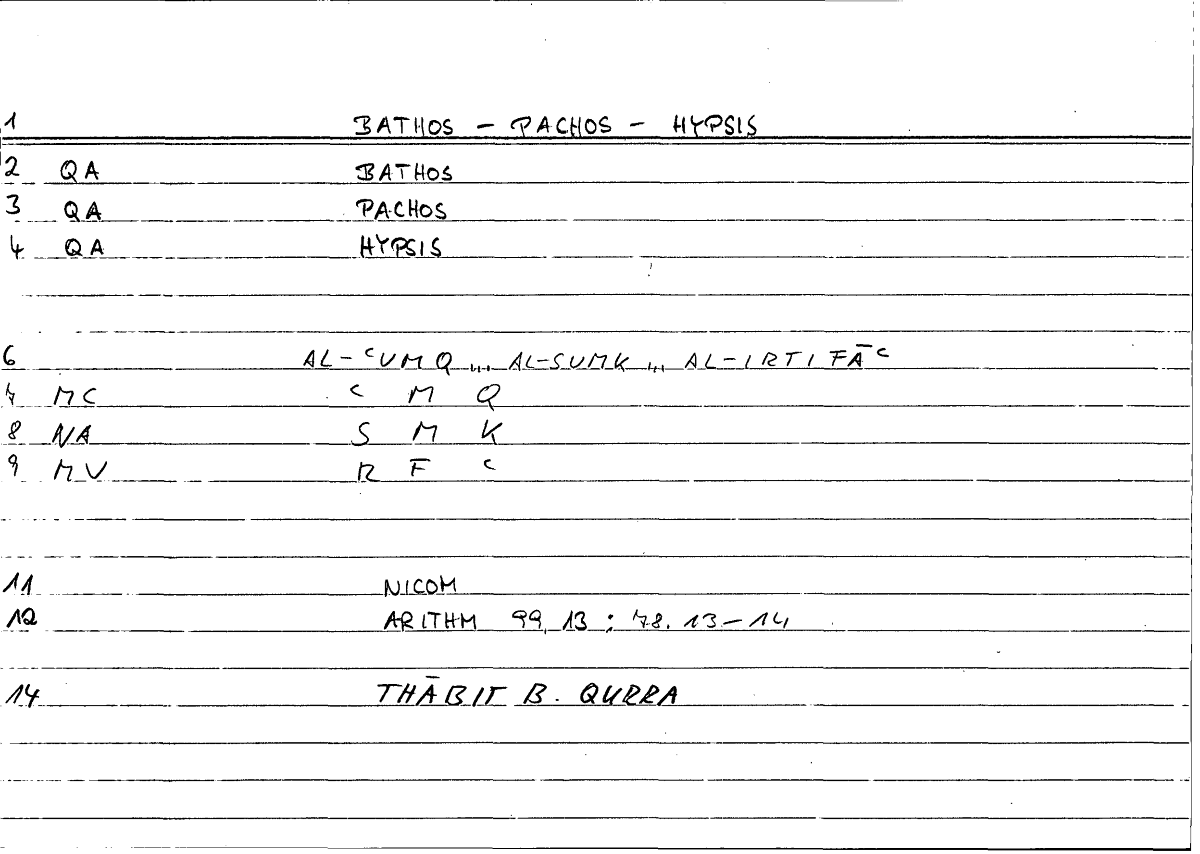 1 BATHOS – PACHOS – HYPSIS
2 QA BATHOS
3 QA PACHOS
4 QA HYPSIS
6 AL-ᶜUMQ ... AL-SUMK ... AL-IRTIFĀᶜ
7 MC ᶜ M Q
8 NA S M K
9 MV R F ᶜ
11 NICOM
12 ARITHM 99,13 ; 78.13–14
14 THĀBIT B. QURRA